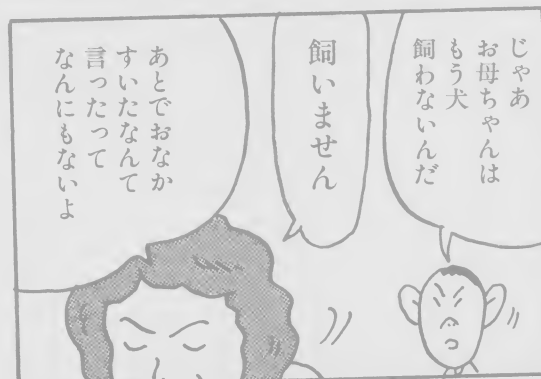 じゃあ
お母ちゃんは
もう犬
飼わないんだ
飼いません
あとでおなか
すいたなんて
言ったって
なんにもないよ